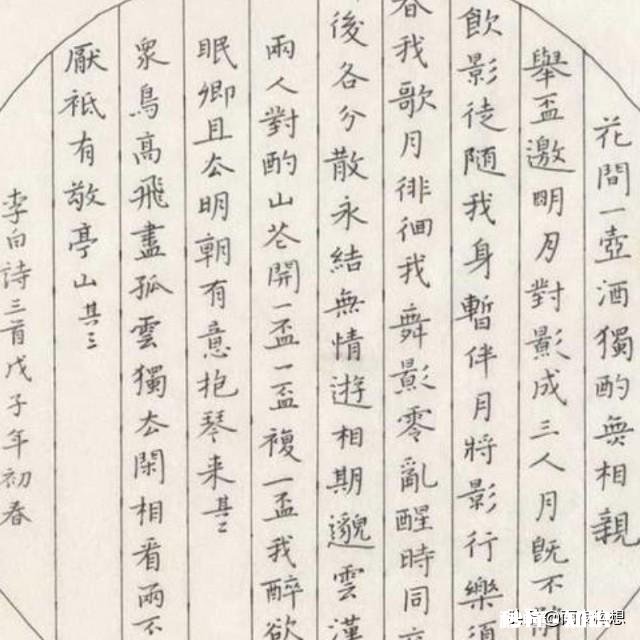 花間一壺酒獨酌無相親
舉盃邀明月對影成三人月既不
飲影徒隨我身暫伴月將影行樂須
春我歌月徘徊我舞影零亂醒時同
後各分散永結無情遊相期邈雲漢
兩人對酌山花開一盃一盃複一盃我醉欲
眠卿且去明朝有意抱琴来其二
眾鳥高飛盡孤雲獨去閑相看兩不
厭祗有敬亭山其三
李白詩三首戊子年初春